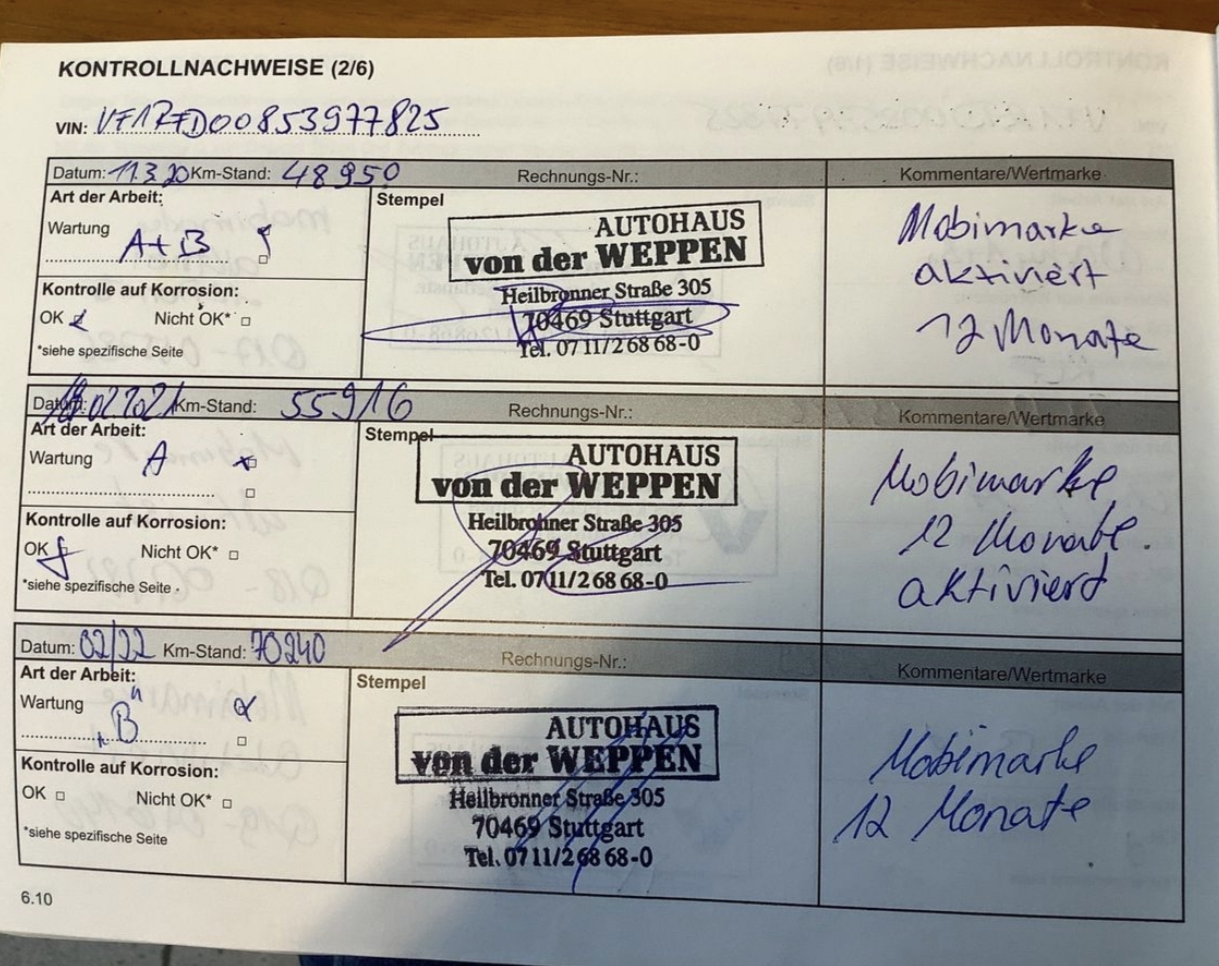 KONTROLLNACHWEISE (2/6)
VIN: VF17FD00853977825
Datum: 11.3.20 Km-Stand: 48950 Rechnungs-Nr.: Kommentare/Wertmarke
Art der Arbeit:
Stempel
Wartung A+B
AUTOHAUS
von der WEPPEN
Heilbronner Straße 305
70469 Stuttgart
Tel. 07 11/2 68 68-0
Mobimarke
aktiviert
12 Monate
Kontrolle auf Korrosion:
OK Nicht OK*
*siehe spezifische Seite
Datum: Km-Stand: 55916 Rechnungs-Nr.: Kommentare/Wertmarke
Art der Arbeit:
Stempel
Wartung A x
AUTOHAUS
von der WEPPEN
Heilbronner Straße 305
70469 Stuttgart
Tel. 07 11/2 68 68-0
Mobimarke
12 Monate.
aktiviert
Kontrolle auf Korrosion:
OK Nicht OK*
*siehe spezifische Seite
Datum: 02/22 Km-Stand: 70240 Rechnungs-Nr.: Kommentare/Wertmarke
Art der Arbeit:
Stempel
Wartung "B"
AUTOHAUS
von der WEPPEN
Heilbronner Straße 305
70469 Stuttgart
Tel. 07 11/2 68 68-0
Mobimarke
12 Monate
Kontrolle auf Korrosion:
OK Nicht OK*
*siehe spezifische Seite
6.10